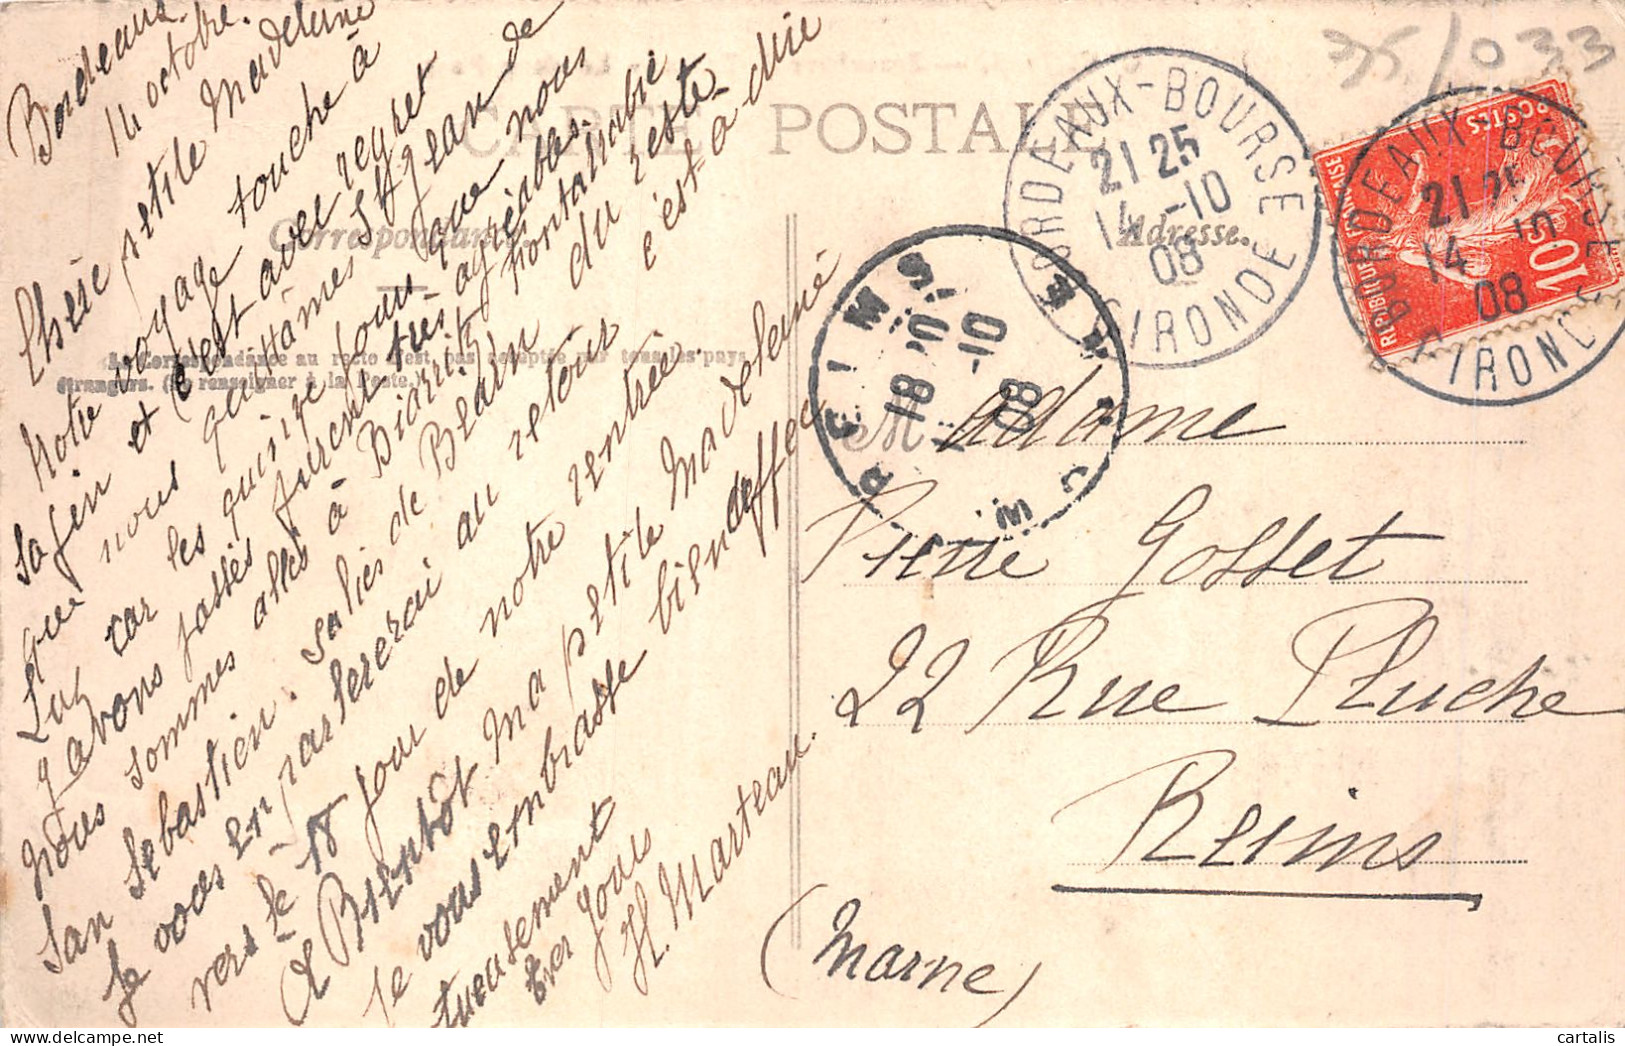 35/033
CARTE POSTALE
Correspondance
Adresse.
La Correspondance au recto n'est pas acceptée par tous les pays
étrangers. (Se renseigner à la Poste.)
BORDEAUX-BOURSE
21 25
14-10
08
GIRONDE
BORDEAUX-BOURSE
21 25
14 10
08
GIRONDE
REIMS
18 10
-10
08
MARNE
POSTES
REPUBLIQUE FRANÇAISE
10c
Bordeaux.
14 octobre.
Chère petite Madeleine
Notre voyage touche à
sa fin et c'est avec regret
que nous quittâmes St Jean de
Luz car les quinze jours que nous
y avons passés furent très agréables.
Nous sommes allés à Biarritz fontarabie
San Sebastien. Salies de Béarn du reste
je vous en parlerai au retour c'est-à-dire
vers le 18 jour de notre rentrée.
A Bientôt ma petite Madeleine
je vous embrasse bien affec
tueusement
H. Marteau.
Madame
Pierre Gosset
22 Rue Pluche
Reims
(Marne)
cartalis